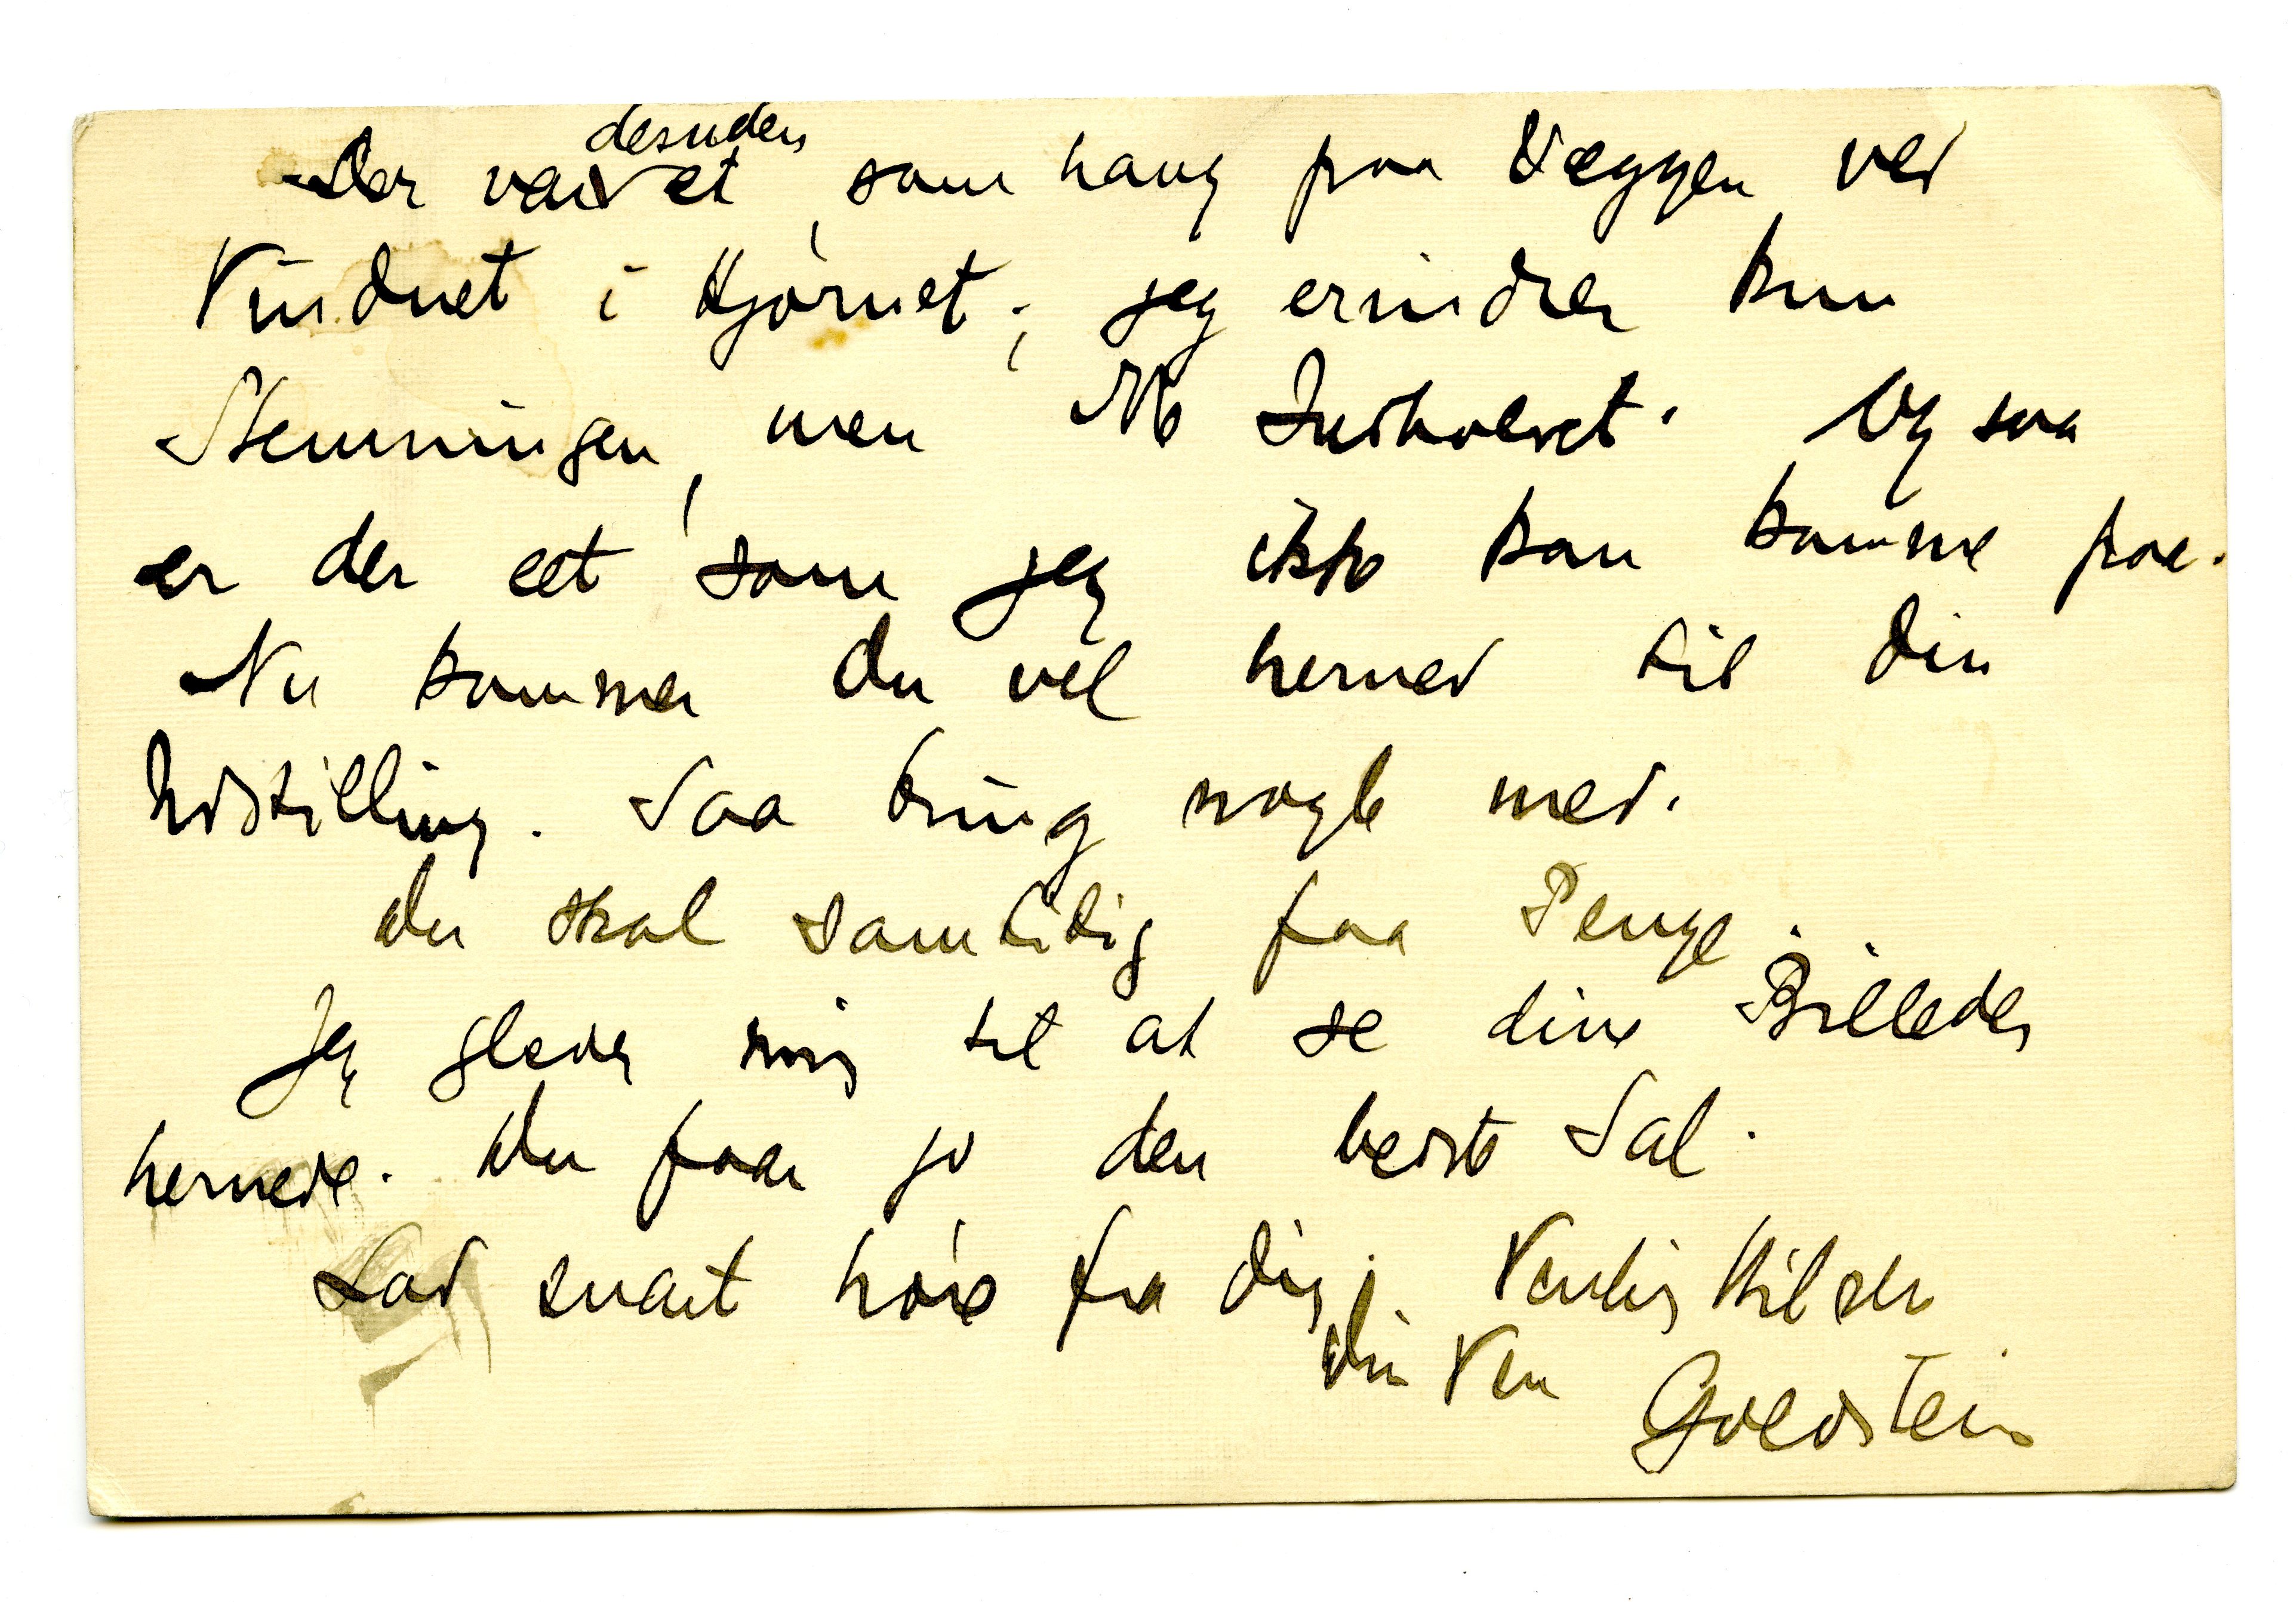 Der var desuden et, som hang paa Væggen ved
Vinduet i Hjørnet; jeg erindrer kun
Stemningen, men ikke Indholdet. Og saa
er der eet som jeg ikke kan komme paa.
Nu kommer du vel herned til din
Udstilling. Saa bring nogle med.
Du skal samtidig faa Penge.
Jeg glæder mig til at se dine Billeder
hernede. Du faar jo den bedste Sal.
Lad snart høre fra dig. Venlig Hilsen
Din Ven
Goldstein